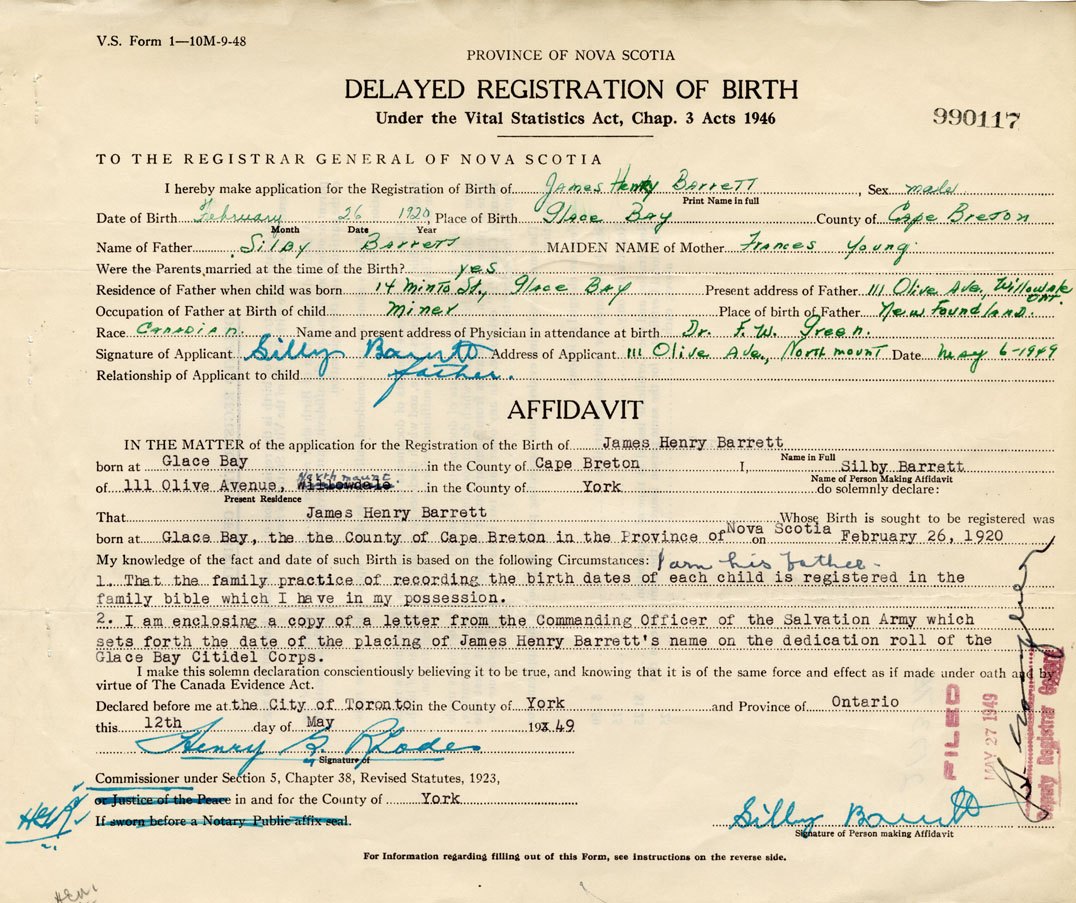 V.S. Form 1—10M-9-48
PROVINCE OF NOVA SCOTIA
DELAYED REGISTRATION OF BIRTH
Under the Vital Statistics Act, Chap. 3 Acts 1946
990117
TO THE REGISTRAR GENERAL OF NOVA SCOTIA
I hereby make application for the Registration of Birth of James Henry Barrett, Sex male
Print Name in full
Date of Birth February 26 1920, Place of Birth Glace Bay County of Cape Breton
Month Date Year
Name of Father Silby Barrett MAIDEN NAME of Mother Frances Young
Were the Parents married at the time of the Birth? yes
Residence of Father when child was born 14 Minto St., Glace Bay Present address of Father 111 Olive Ave, Willowdale ONT.
Occupation of Father at Birth of child Miner Place of birth of Father New Foundland.
Race Canadian. Name and present address of Physician in attendance at birth Dr. F. W. Green.
Signature of Applicant Silby Barrett Address of Applicant 111 Olive Ave., North mount Date May 6-1949
Relationship of Applicant to child father.
AFFIDAVIT
IN THE MATTER of the application for the Registration of the Birth of James Henry Barrett
Name in Full
born at Glace Bay in the County of Cape Breton I, Silby Barrett
Name of Person Making Affidavit
of 111 Olive Avenue, North mount Willowdale in the County of York do solemnly declare:
Present Residence
That James Henry Barrett Whose Birth is sought to be registered was
born at Glace Bay, the the County of Cape Breton in the Province of Nova Scotia on February 26, 1920
My knowledge of the fact and date of such Birth is based on the following Circumstances: I am his father.
1. That the family practice of recording the birth dates of each child is registered in the
family bible which I have in my possession.
2. I am enclosing a copy of a letter from the Commanding Officer of the Salvation Army which
sets forth the date of the placing of James Henry Barrett's name on the dedication roll of the
Glace Bay Citidel Corps.
I make this solemn declaration conscientiously believing it to be true, and knowing that it is of the same force and effect as if made under oath and by
virtue of The Canada Evidence Act.
Declared before me at the City of Toronto in the County of York and Province of Ontario
this 12th day of May 1949
Henry G. Rhodes
Signature of
Commissioner under Section 5, Chapter 38, Revised Statutes, 1923,
or Justice of the Peace in and for the County of York
If sworn before a Notary Public affix seal.
Silby Barrett
Signature of Person making Affidavit
FILED
MAY 27 1949
Deputy Registrar General
For Information regarding filling out of this Form, see instructions on the reverse side.